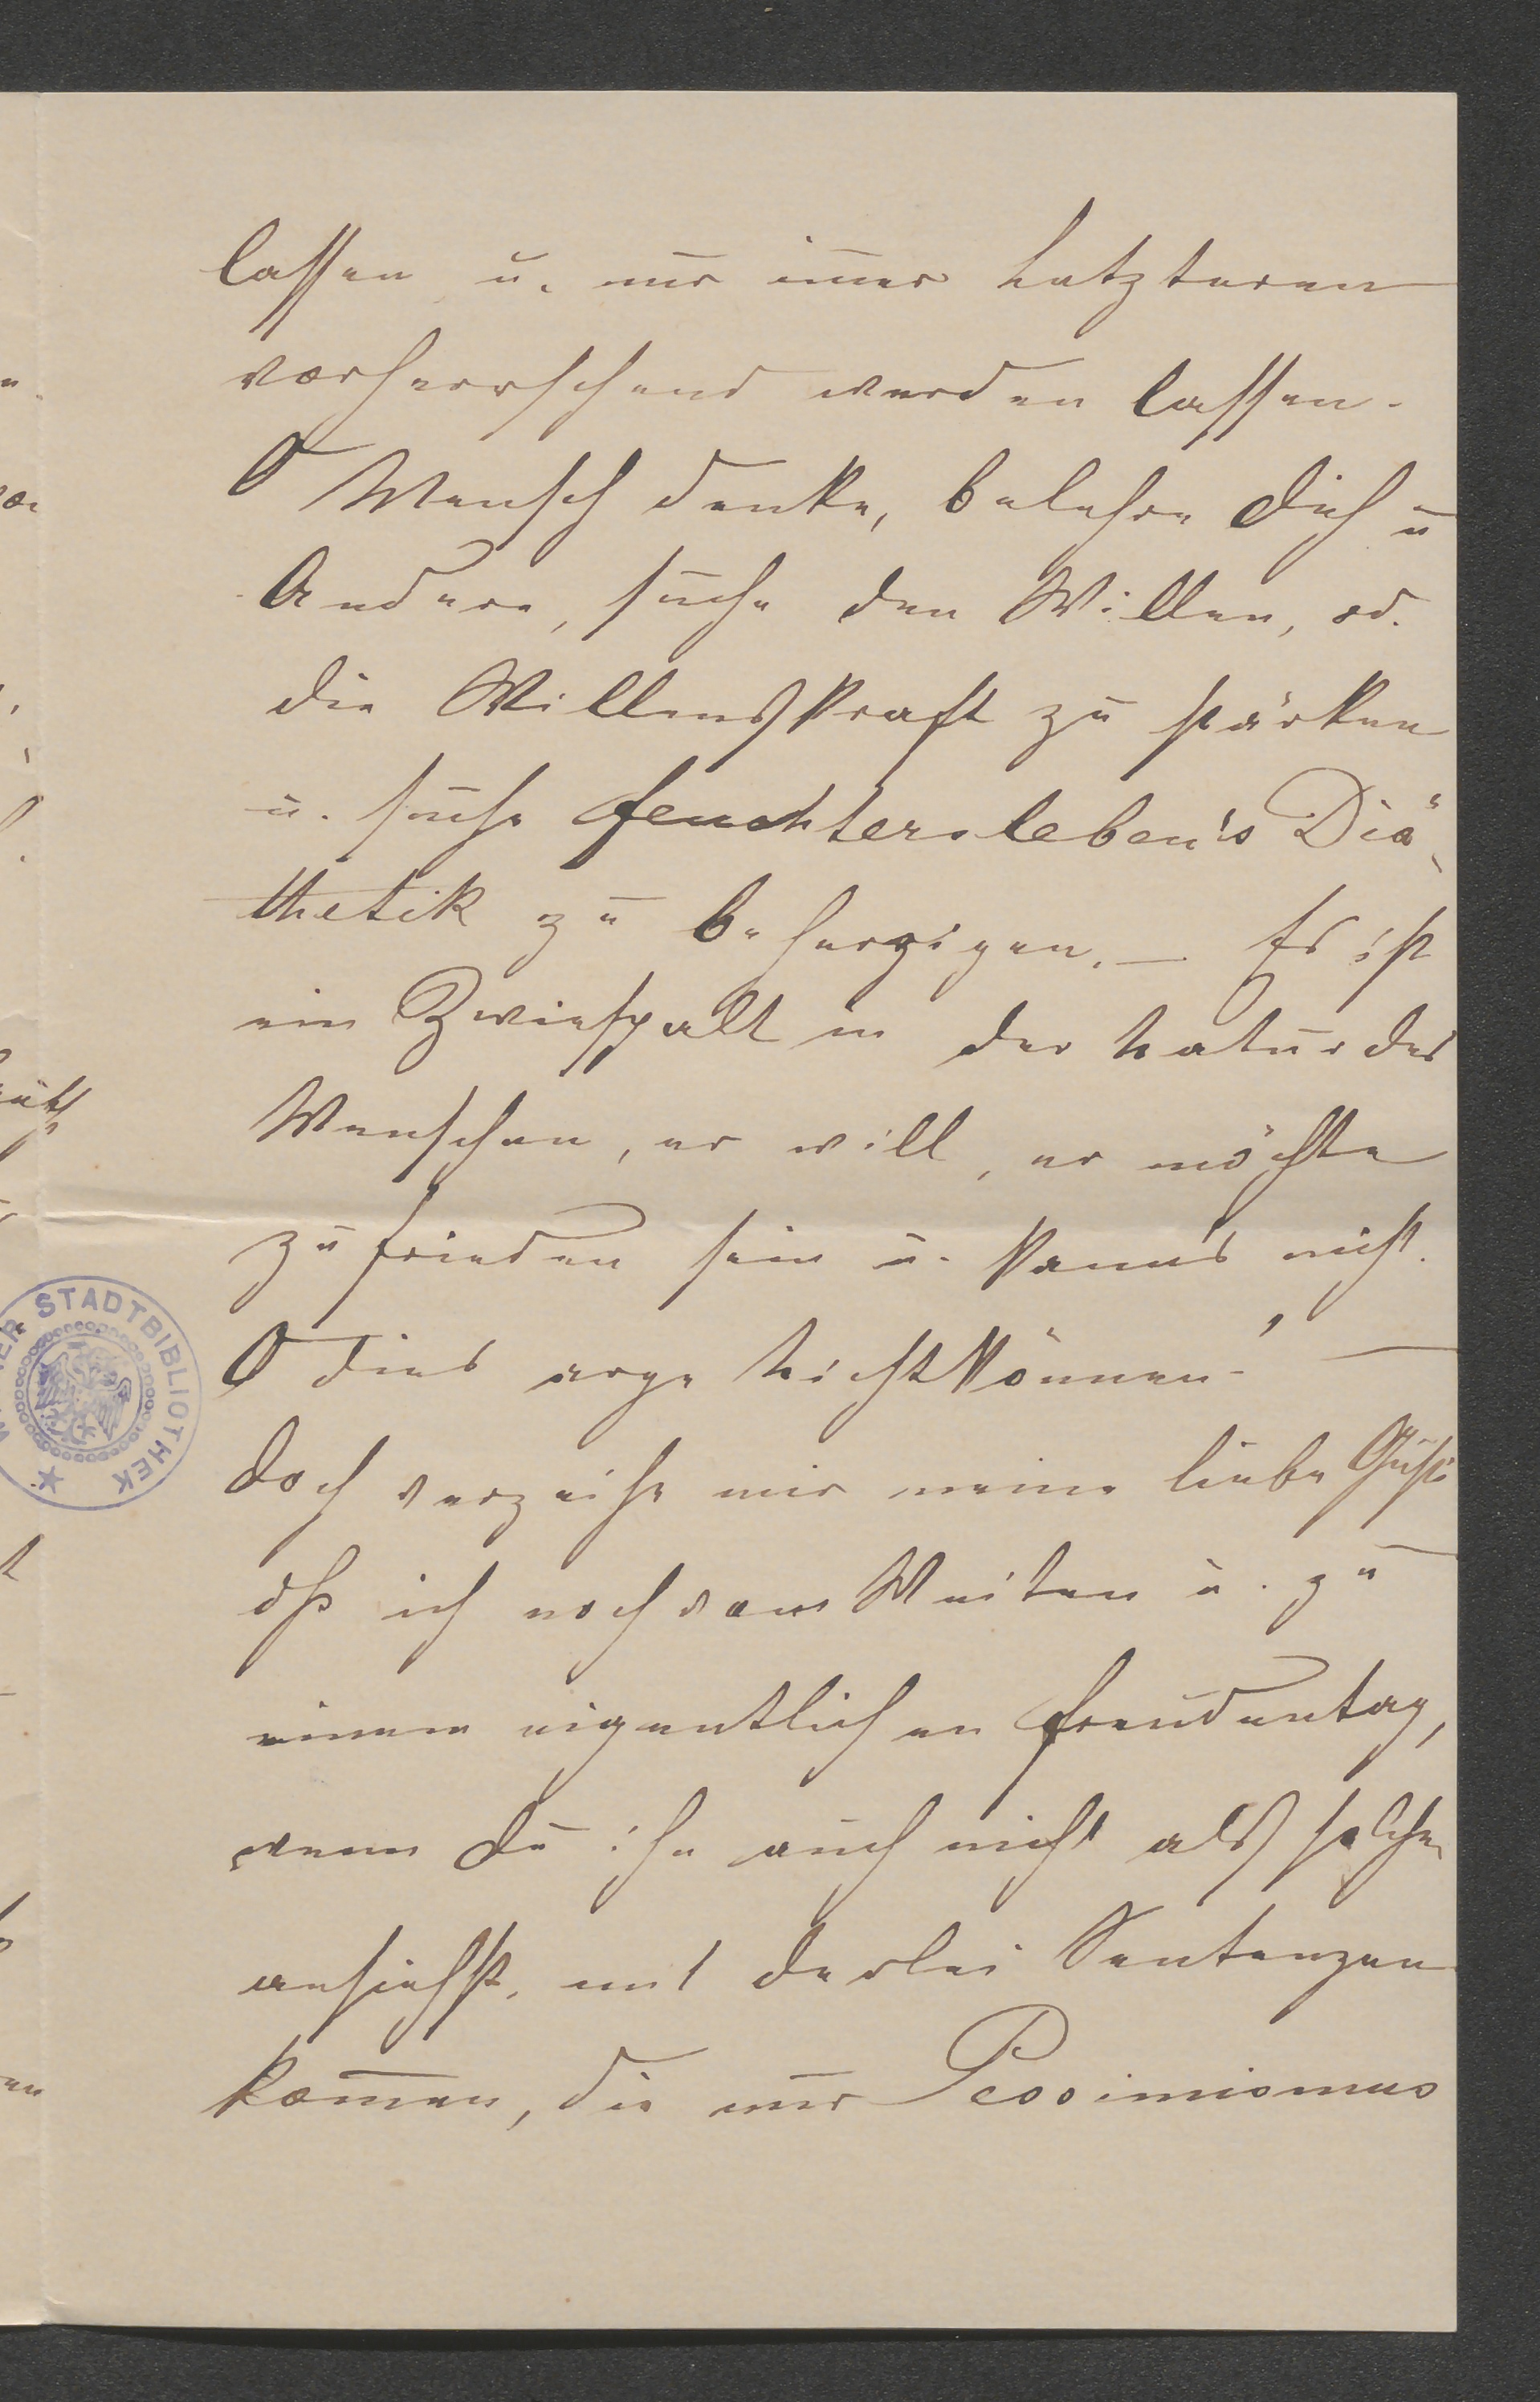 lassen u. nur im̄er Letzteren
vorherrschend werden lassen.
O Mensch denke, belehre Dich u
Andere, suche den Willen, od.
die Willenskraft zu stärken
u. suche Feuchtersleben's Diä-
thetik zu beherzigen. – Es ist
ein Zwiespalt in der Natur des
Menschen, er will, er möchte
zufrieden sein u. kann's nicht.
O dies arge Nichtkönnen. –
Doch verzeihe mir meine liebe Gusti
dß ich noch vom Weiten u. zu
einem eigentlichen Freudentag,
wenn Du ihn auch nicht als solchen
ansiehst, mit derlei Sentenzen
kom̄en, die nur Pessimismus
STADTBIBLIOTHEK